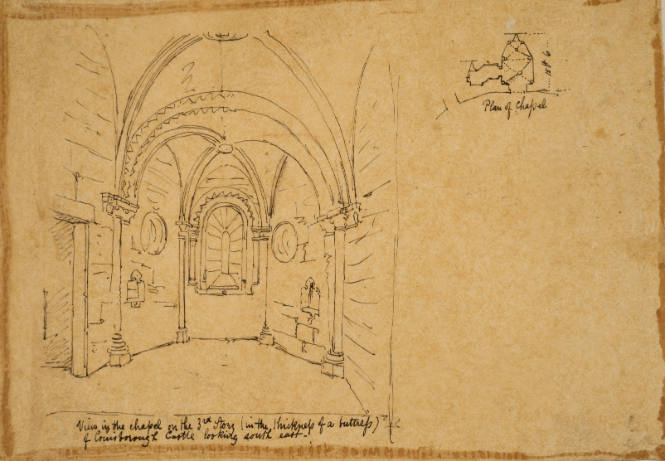 Plan of Chapel
View in the chapel on the 3rd Story (in the thickness of a buttress)
of Conisborough Castle looking south east.